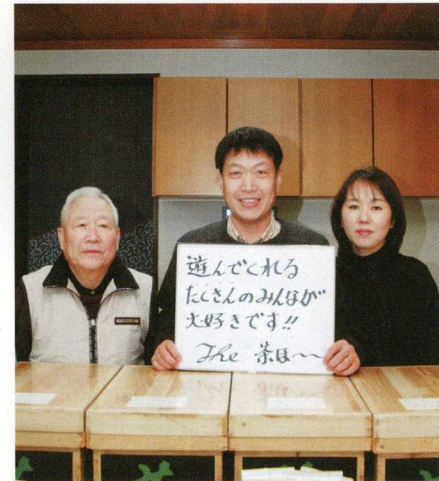 遊んでくれる
たくさんのみんなが
大好きです!!
The 茶ほ〜〜